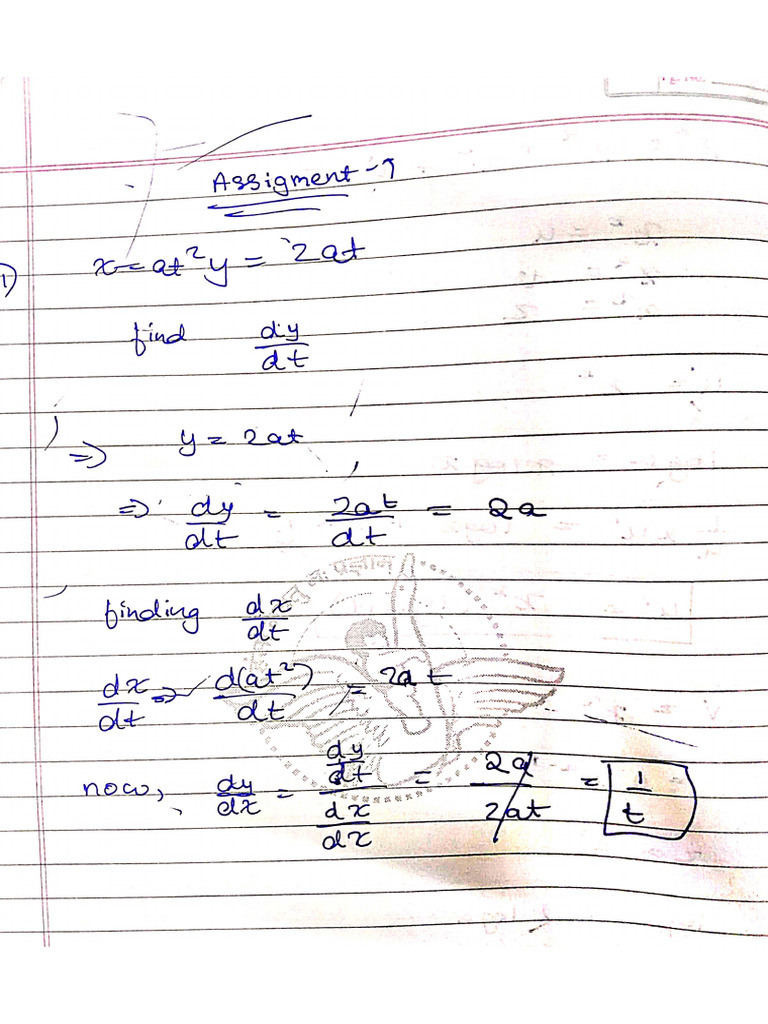 Assigment - 1
1) x = at² y = 2at
find dy/dt
⇒ y = 2at
⇒ dy/dt = 2at/dt = 2a
finding dx/dt
dx/dt ⇒ d(at²)/dt = 2at
now, dy/dx = (dy/dt)/(dx/dx) = 2a/2at = 1/t